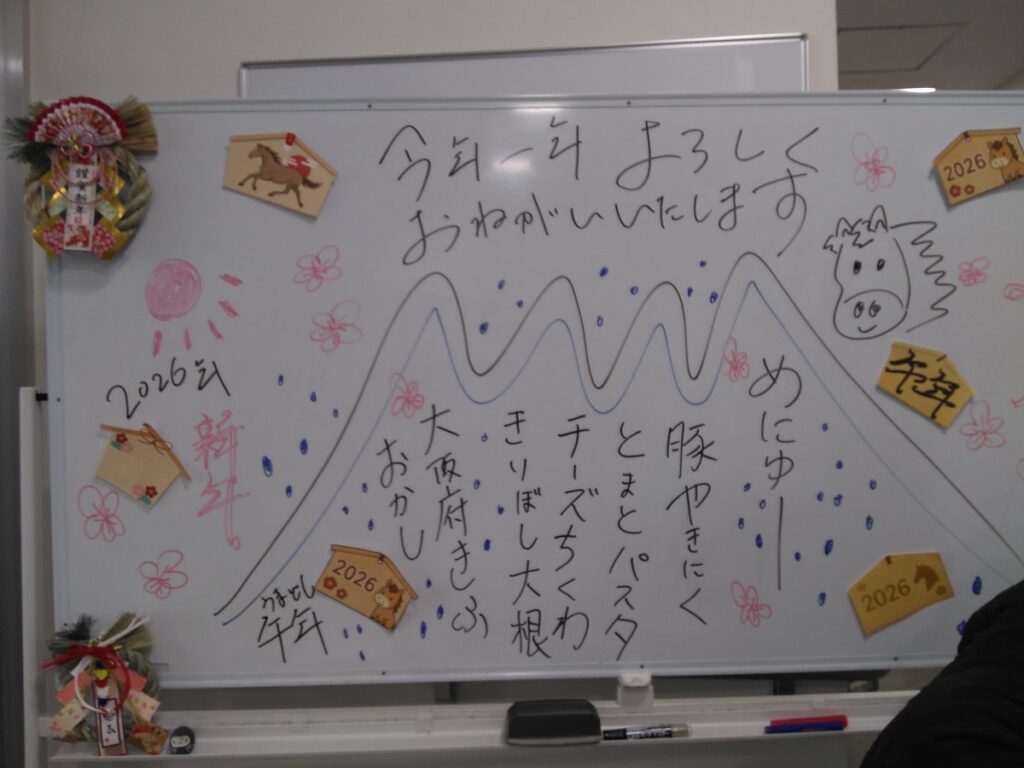 今年一年 よろしく
おねがいいたします
めにゅー
豚やきにく
とまとパスタ
チーズちくわ
きりぼし大根
大阪府きしふ
おかし
2026年
新年
うまどし
午年
2026
午年
2026
2026
謹賀新年